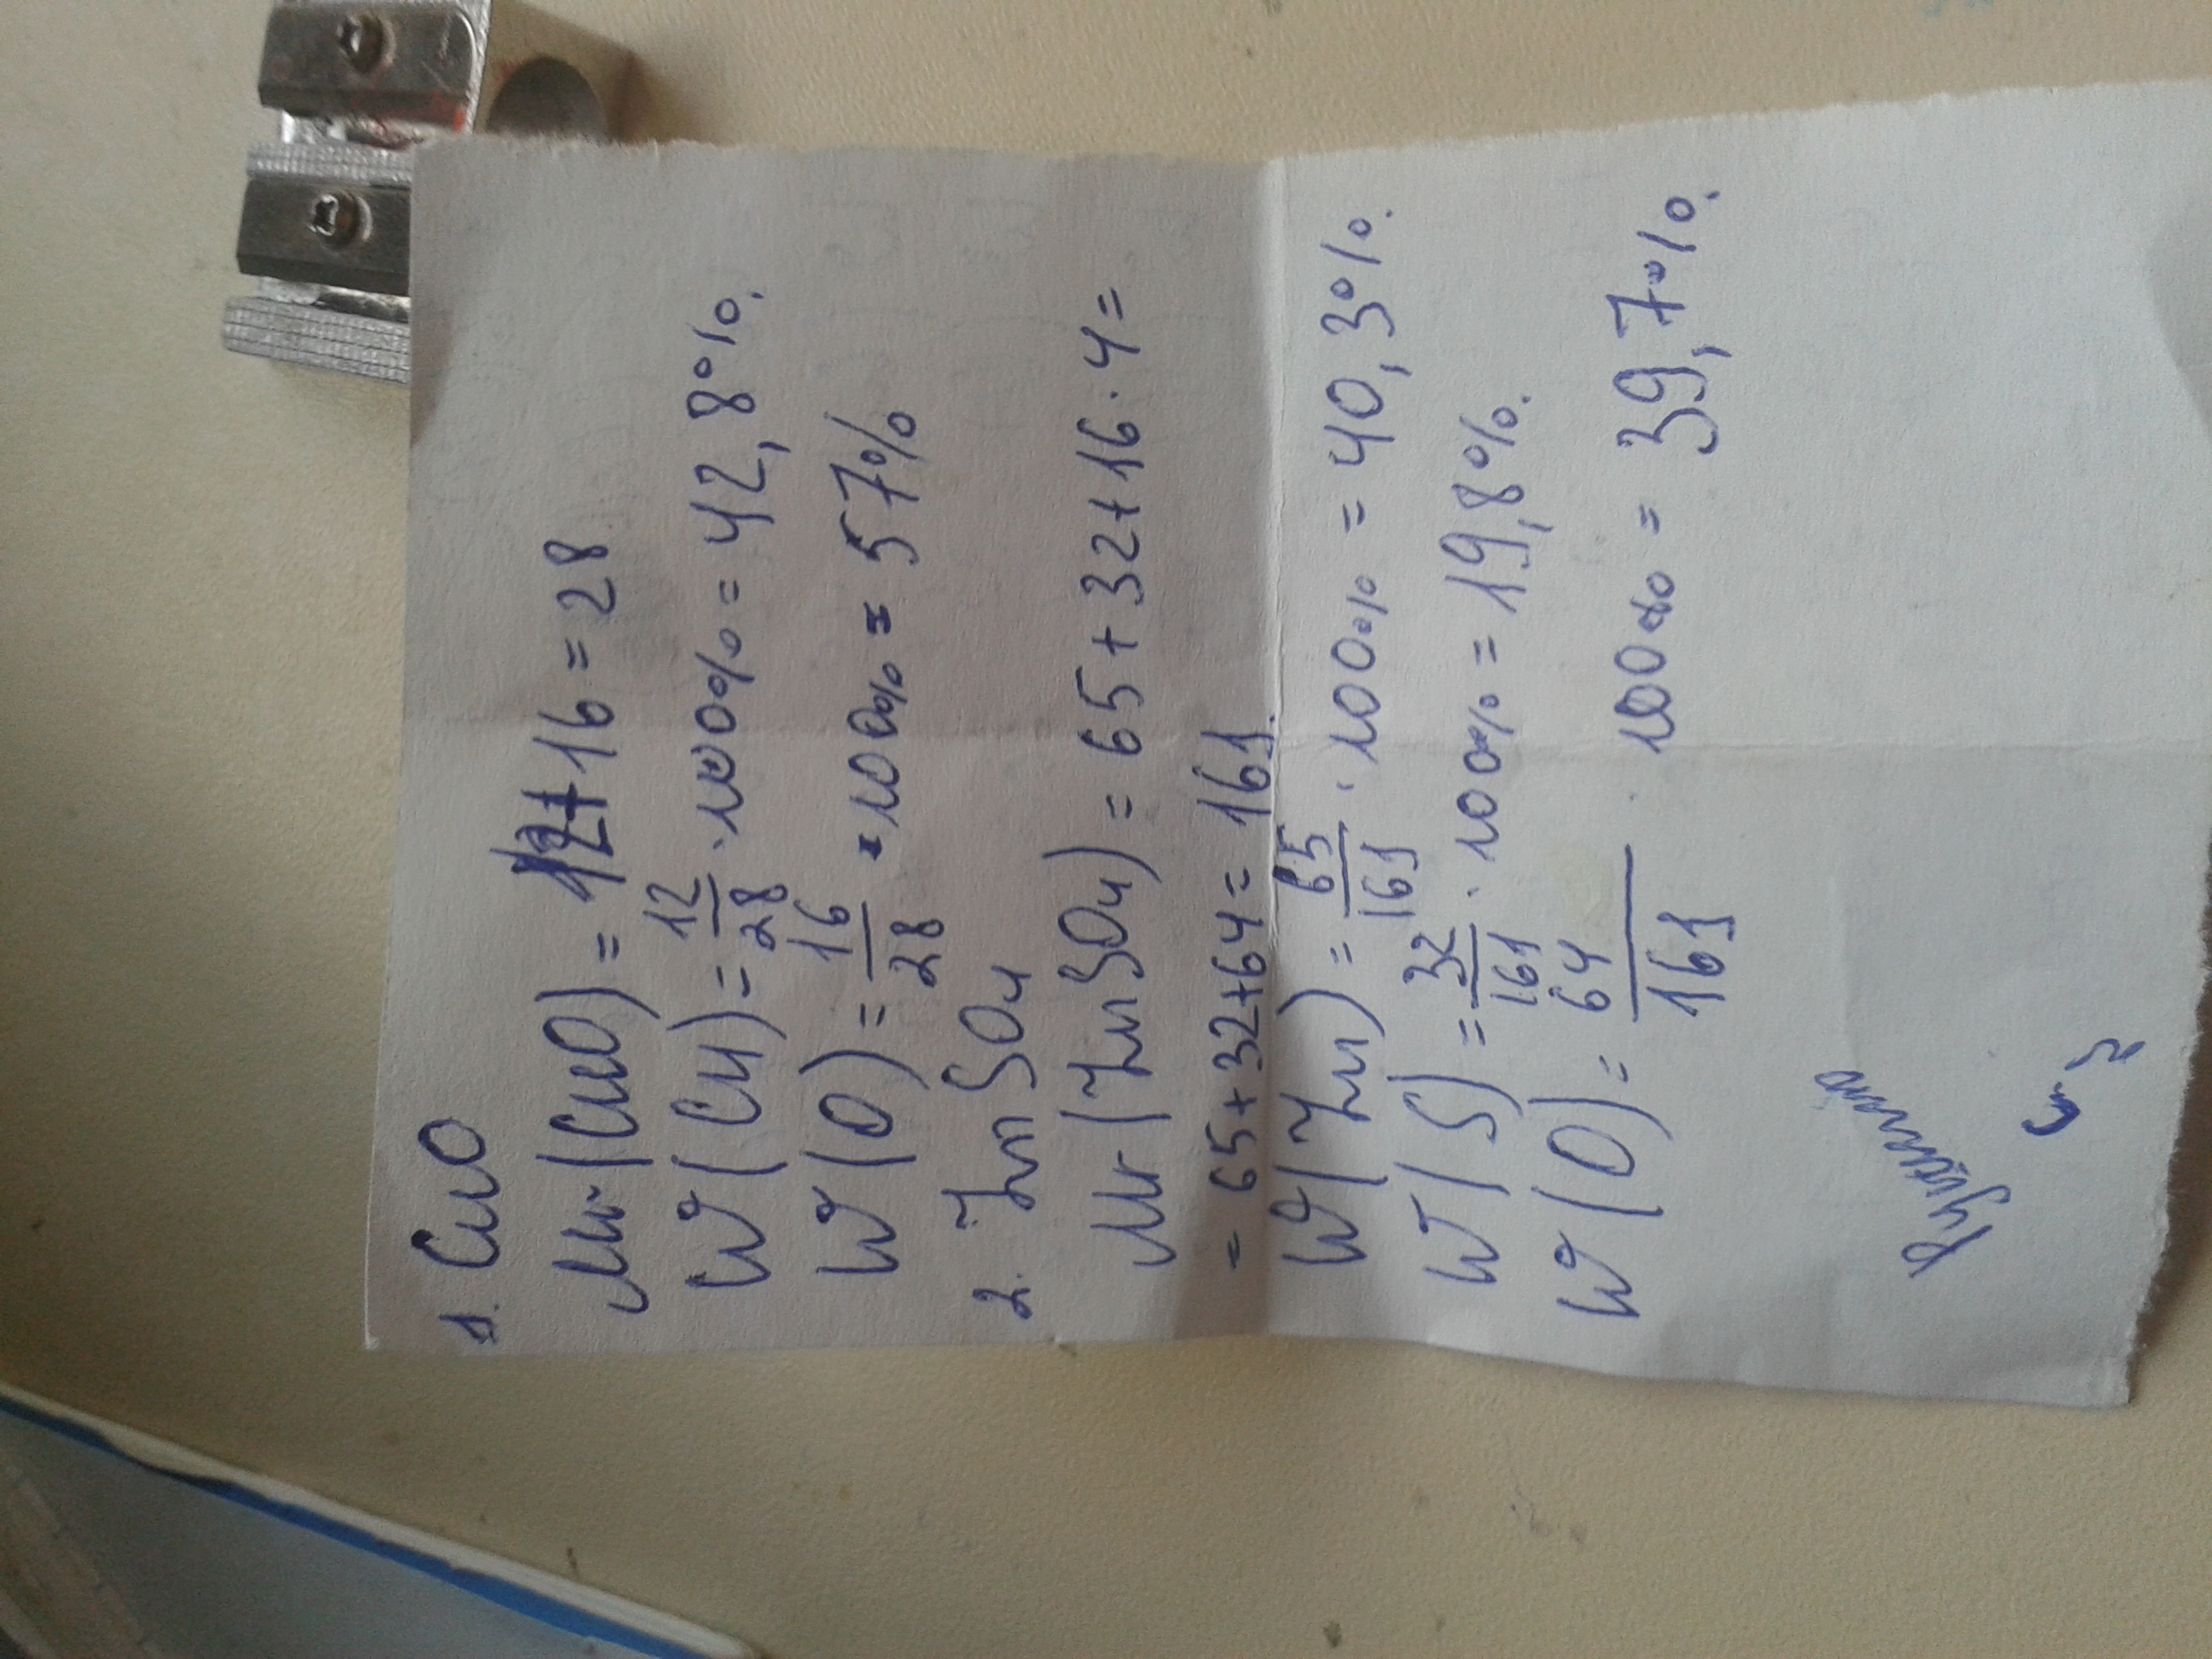 1. CuO
Mr(CuO) = 12+16 = 28
W(Cu) = 12/28 · 100% = 42,8%.
W(O) = 16/28 · 100% = 57%
2. ZnSO4
Mr(ZnSO4) = 65+32+16·4=
= 65+32+64= 161.
W(Zn) = 65/161 · 100% = 40,3%.
W(S) = 32/161 · 100% = 19,8%.
W(O) = 64/161 · 100% = 39,7%.